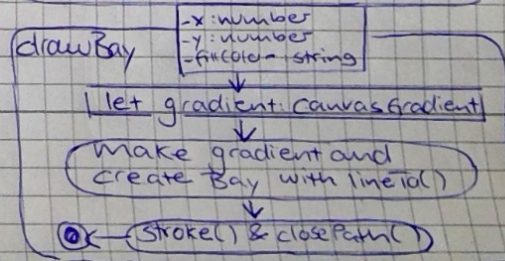 -x: number
-y: number
-fillColor- string
drawBay
let gradient: CanvasGradient
make gradient and
create Bay with lineTo()
stroke() & closePath()